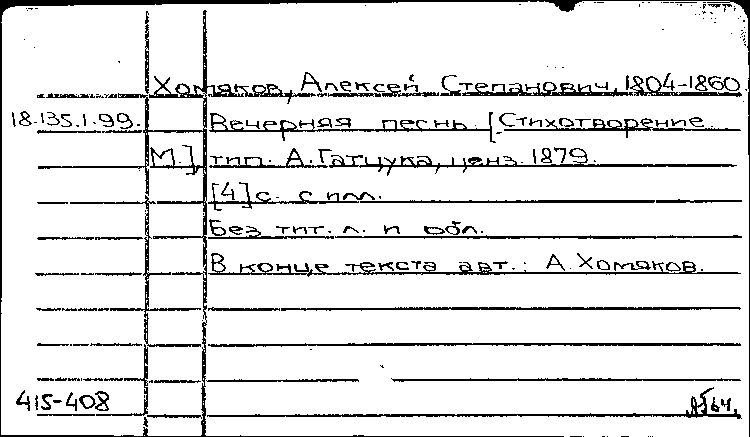 Хомяков, Алексей Степанович, 1804-1860
18.135.1.99. Вечерняя песнь. [Стихотворение.
М.], тип. А. Гатцука, ценз. 1879.
[4] с. с илл.
Без тит. л. и обл.
В конце текста авт.: А. Хомяков.
415-408